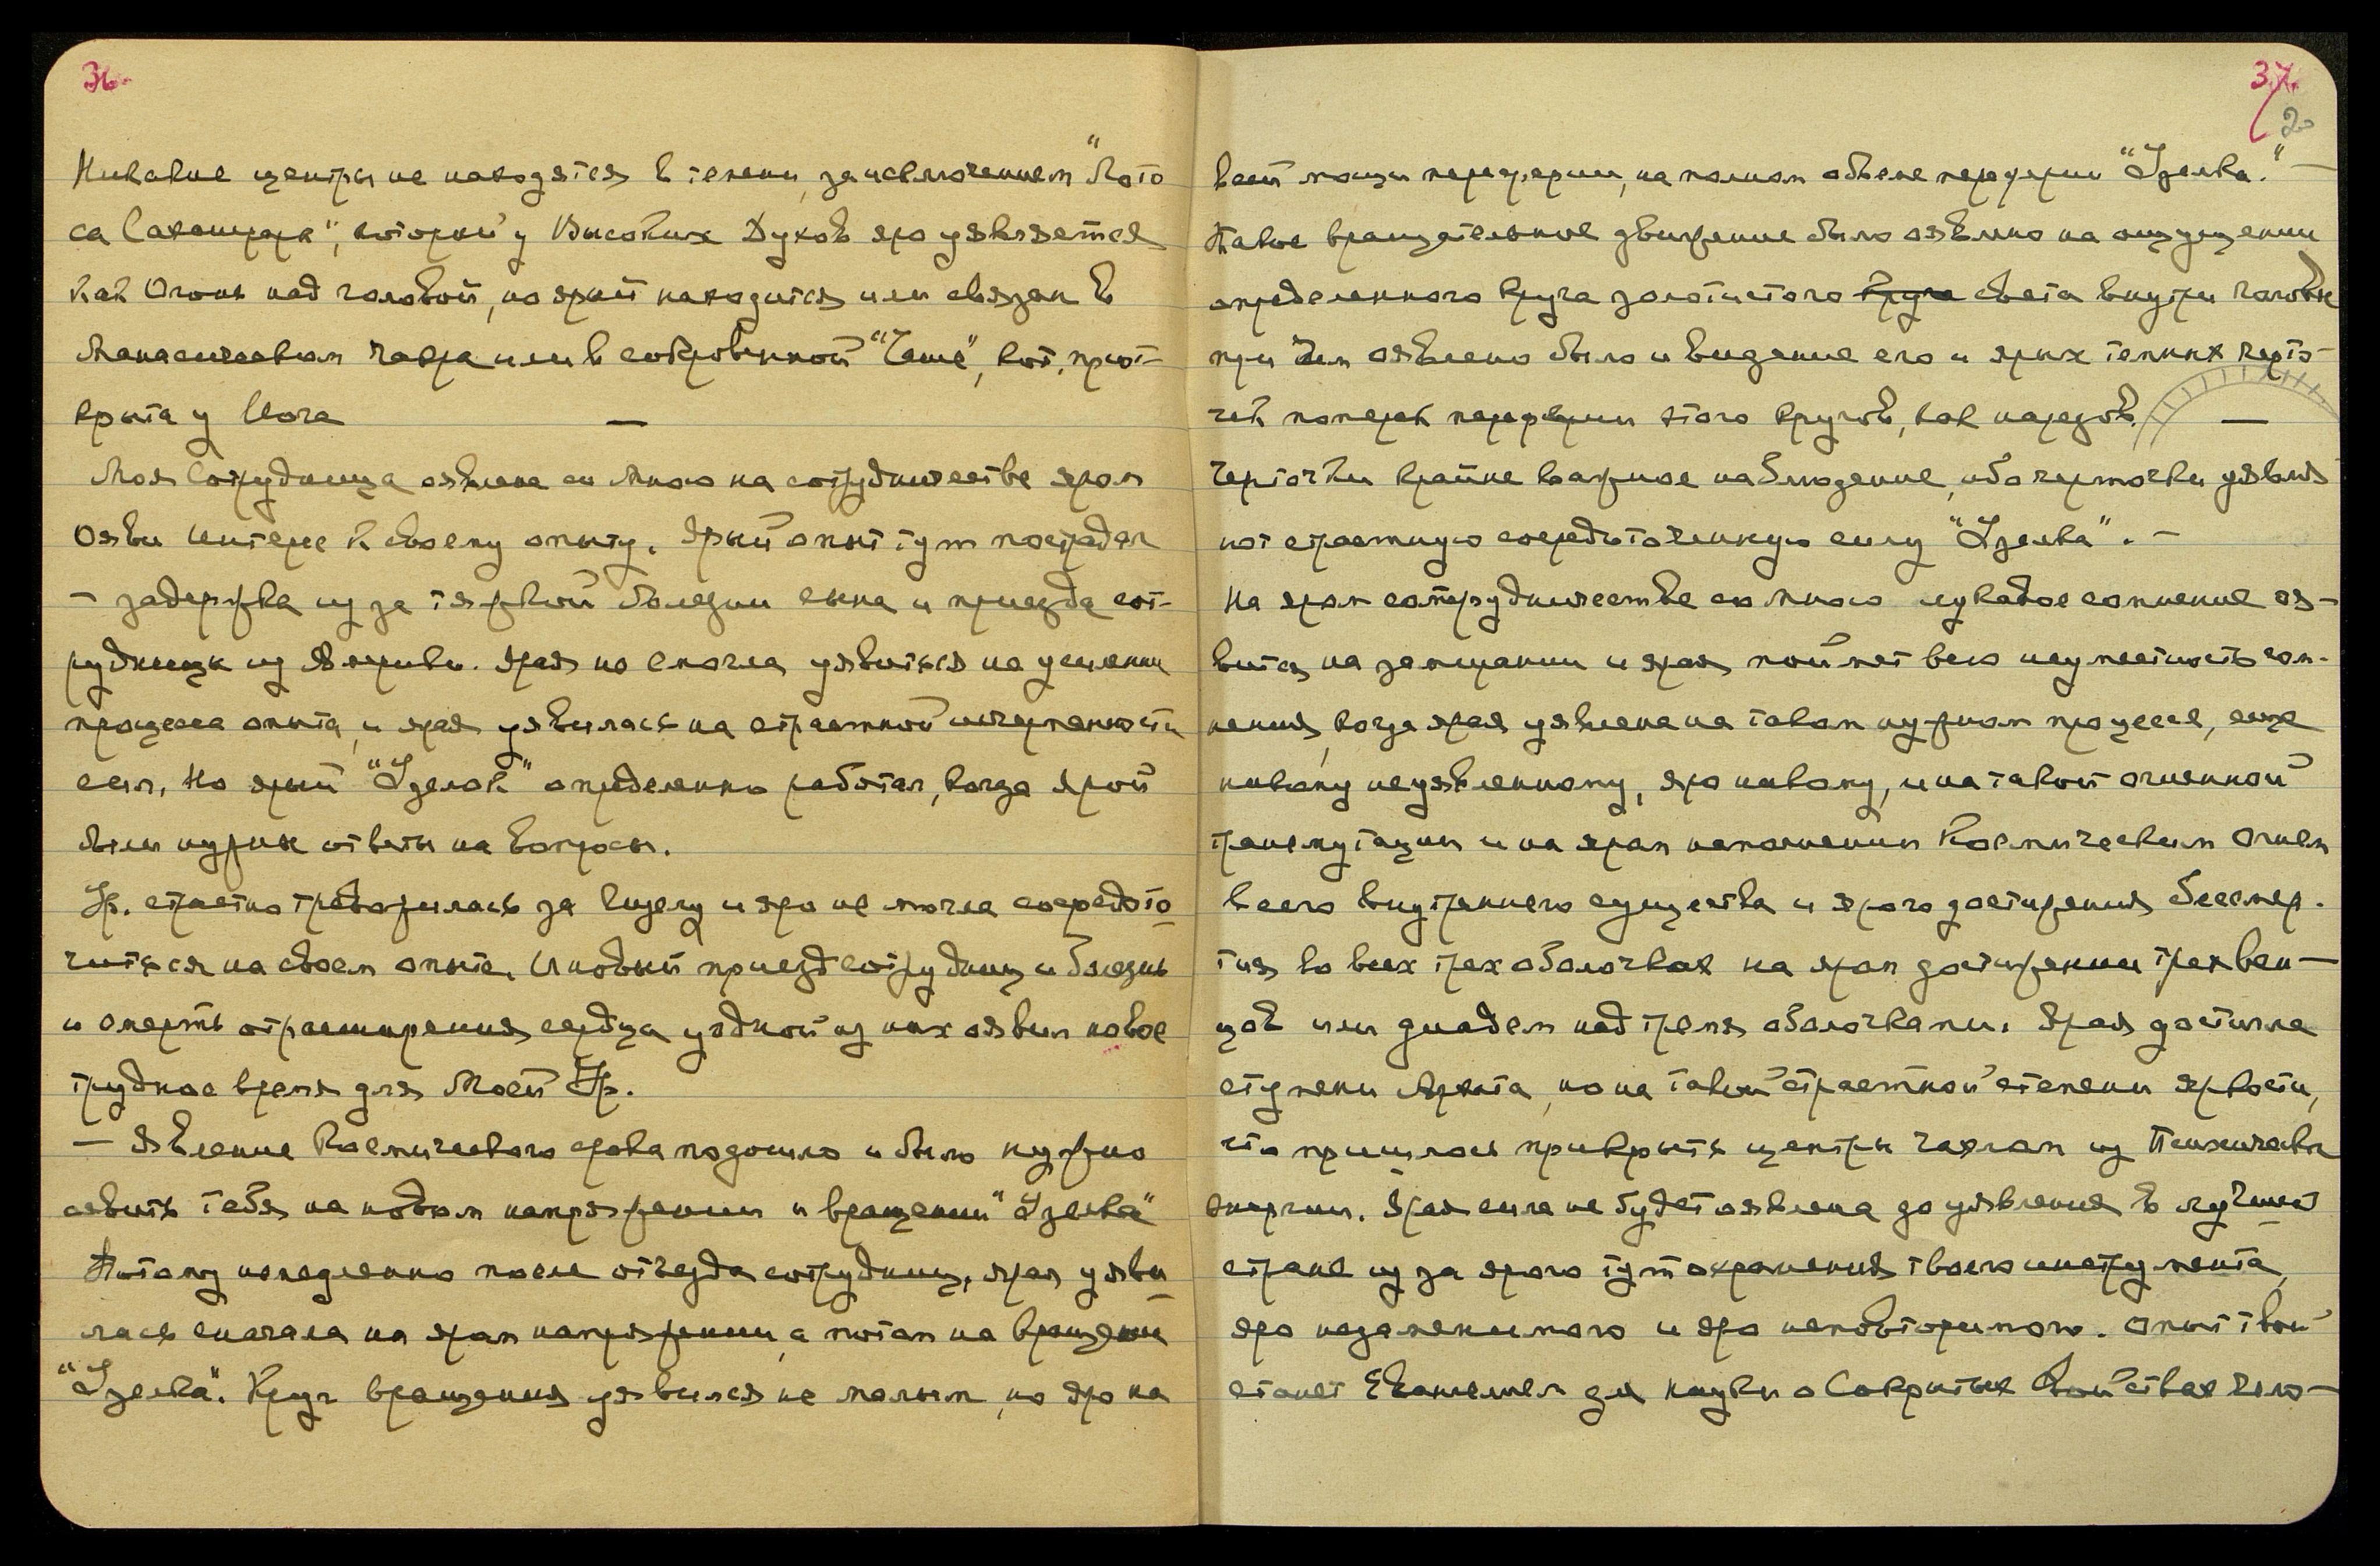 36.
Никакие центры не находятся в темени, за исключением "Лото
са Сахасрара", который у Высоких Духов яро уявляется
как Огонь над головой, но ярый находится или связан в
Манасическом чакра или в сокровенной "Чаше", кот. прио-
крыта у Йога —
Моя Сотрудница оявлена со Мною на сотрудничестве яром
Ояви интерес к своему опыту. Ярый опыт тут пострадал
– задержка из за тяжкой болезни сына и приезда сот-
рудницы из Америки. Ярая не смогла уявиться на усилении
процесса опыта, и ярая уявилась на страстной исчерпанности
сил. Но ярый "Узелок" определенно работал, когда ярой
были нужны ответы на вопросы.
Ур. страстно тревожилась за и яро не могла сосредото
читься на своем опыте. И новый приезд сотрудниц и болезнь
и смерть от расширения сердца у одной из них оявил новое
трудное время для Моей Ур.
— Явление Космического срока подошло и было нужно
оявить тебя на новом напряжении и вращении "Узелка"
Потому немедленно после отъезда сотрудниц, ярая уяви
лась сначала на яром напряжении, а потом на вращении
"Узелка". Круг вращения уявился не малым, но яро на
37.
2
всей мощи периферии, на полном объеме периферии "Узелка." —
Такое вращательное движение было оявлено на ощущении
определенного круга золотистого круга света внутри головы
при чем оявлено было и видение его и ярых темных черто-
чек поперек периферии этого кругов, как нарезов. —
Черточки крайне важное наблюдение, ибо черточки уявля
ют страстную сосредоточенную силу "Узелка". –
На яром сотрудничестве со Мною лукавое сомнение оя-
вится на замирании и ярая поймет всю неуместность сом-
нения, когда ярая уявлена на таком нужном процессе, еще
никому неуявленному, яро никому, и на такой огненной
трансмутации и на яром наполнении Космическим Огнем
всего внутреннего существа и ярого достижения бессмер-
тия во всех трех оболочках на яром достижении трех вен—
цов или диадем над тремя оболочками. Ярая достигла
ступени Архата, но на такой страстной степени яркости,
что пришлось прикрыть центры чехлом из Психической
энергии. Ярая сила не будет оявлена до уявления в лучшей
стране из за ярого тут охранения твоего инструмента,
яро незаменимого и яро неповторимого. Опыт твой
станет Евангелием для науки о Сокрытых Свойствах чело—